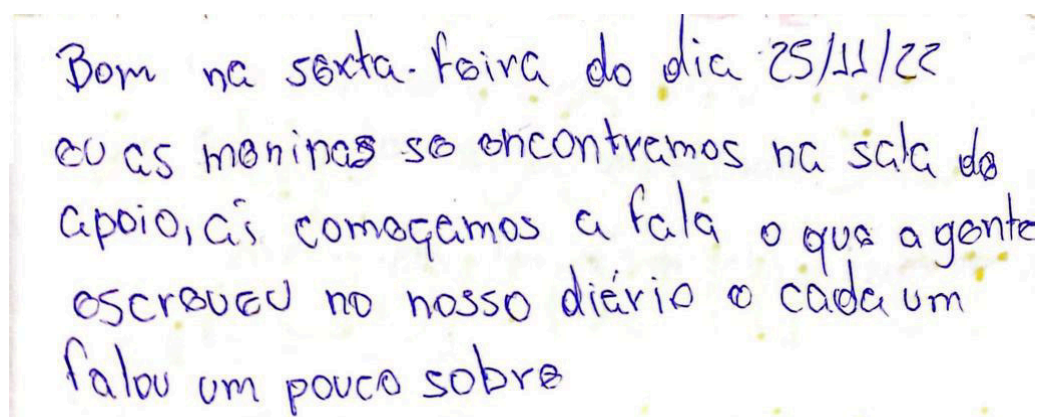 Bom na sexta-feira do dia 25/11/22
eu as meninas se encontramos na sala de
apoio, aí começamos a fala o que agente
escreveu no nosso diário e cada um
falou um pouco sobre